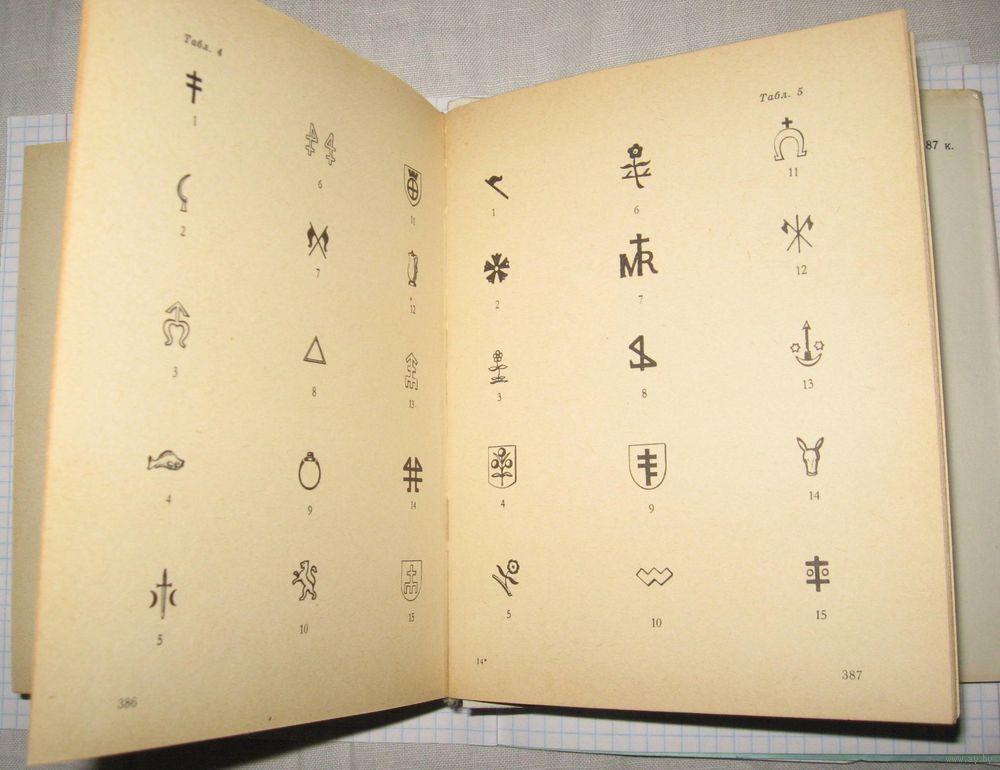 Табл. 4
1
2
3
4
5
6
7
8
9
10
11
12
13
14
15
386
Табл. 5
1
2
3
4
5
14*
6
7
MR
8
9
10
11
12
13
14
15
387
87 к.
www.ay.by